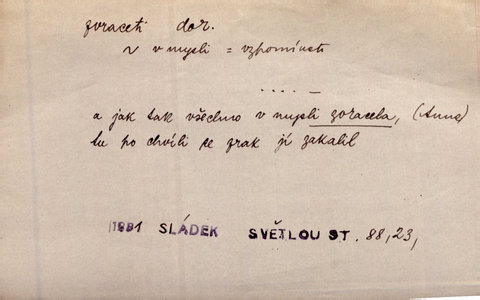 zvraceti dok.
~ v mysli = vzpomínati
.... —
a jak tak všechno v mysli zvracela, (Anna)
tu po chvíli se zrak jí zakalil
1881 SLÁDEK SVĚTLOU ST. 88,23,